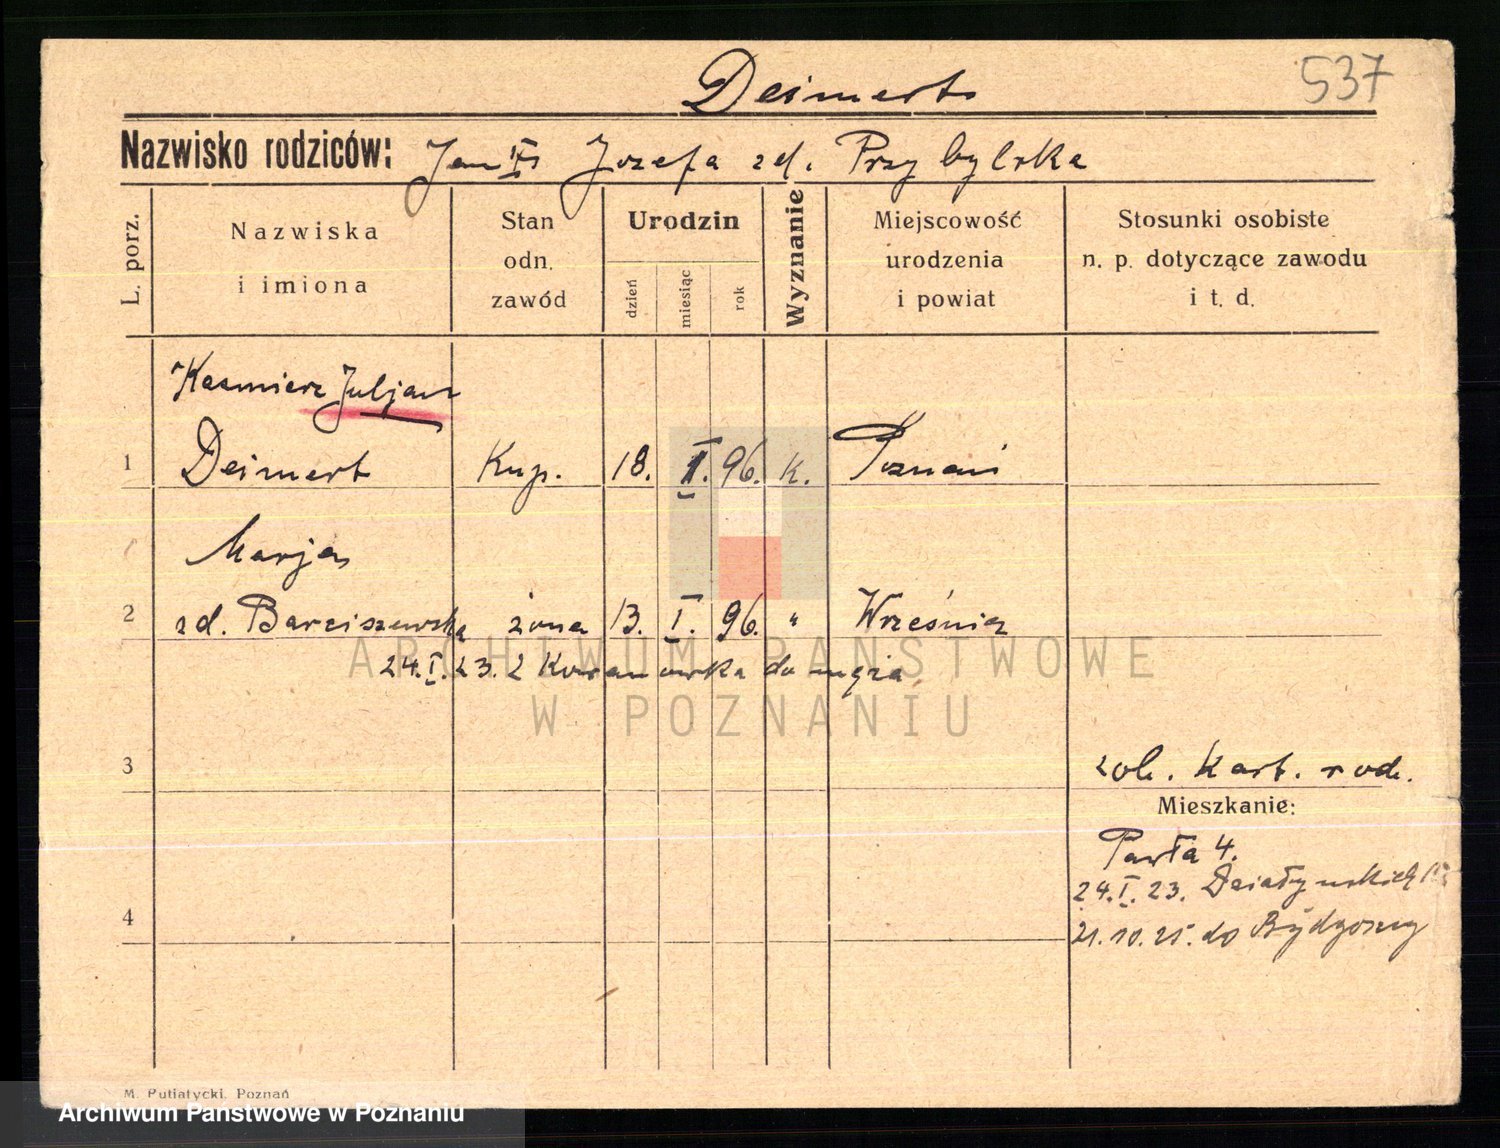 537
Deimert
Nazwisko rodziców: Jan Józefa zd. Przybylska
L. porz.
Nazwiska
i imiona
Stan
odn.
zawód
Urodzin
dzień
miesiąc
rok
Wyznanie
Miejscowość
urodzenia
i powiat
Stosunki osobiste
n. p. dotyczące zawodu
i t. d.
Kazimierz Juljan
1 Deimert Kup. 18. II. 96. K. Poznań
Marja
2 zd. Barciszewska żona 13. I. 96. " Września
24.I.23. z Kowanówka do męża
3
zob. Kart. rodz.
Mieszkanie:
Pawła 4.
24.I.23. Działyńskich
4
21.10.25. do Bydgoszczy
ARCHIWUM PAŃSTWOWE
W POZNANIU
M. Putiatycki, Poznań
Archiwum Państwowe w Poznaniu